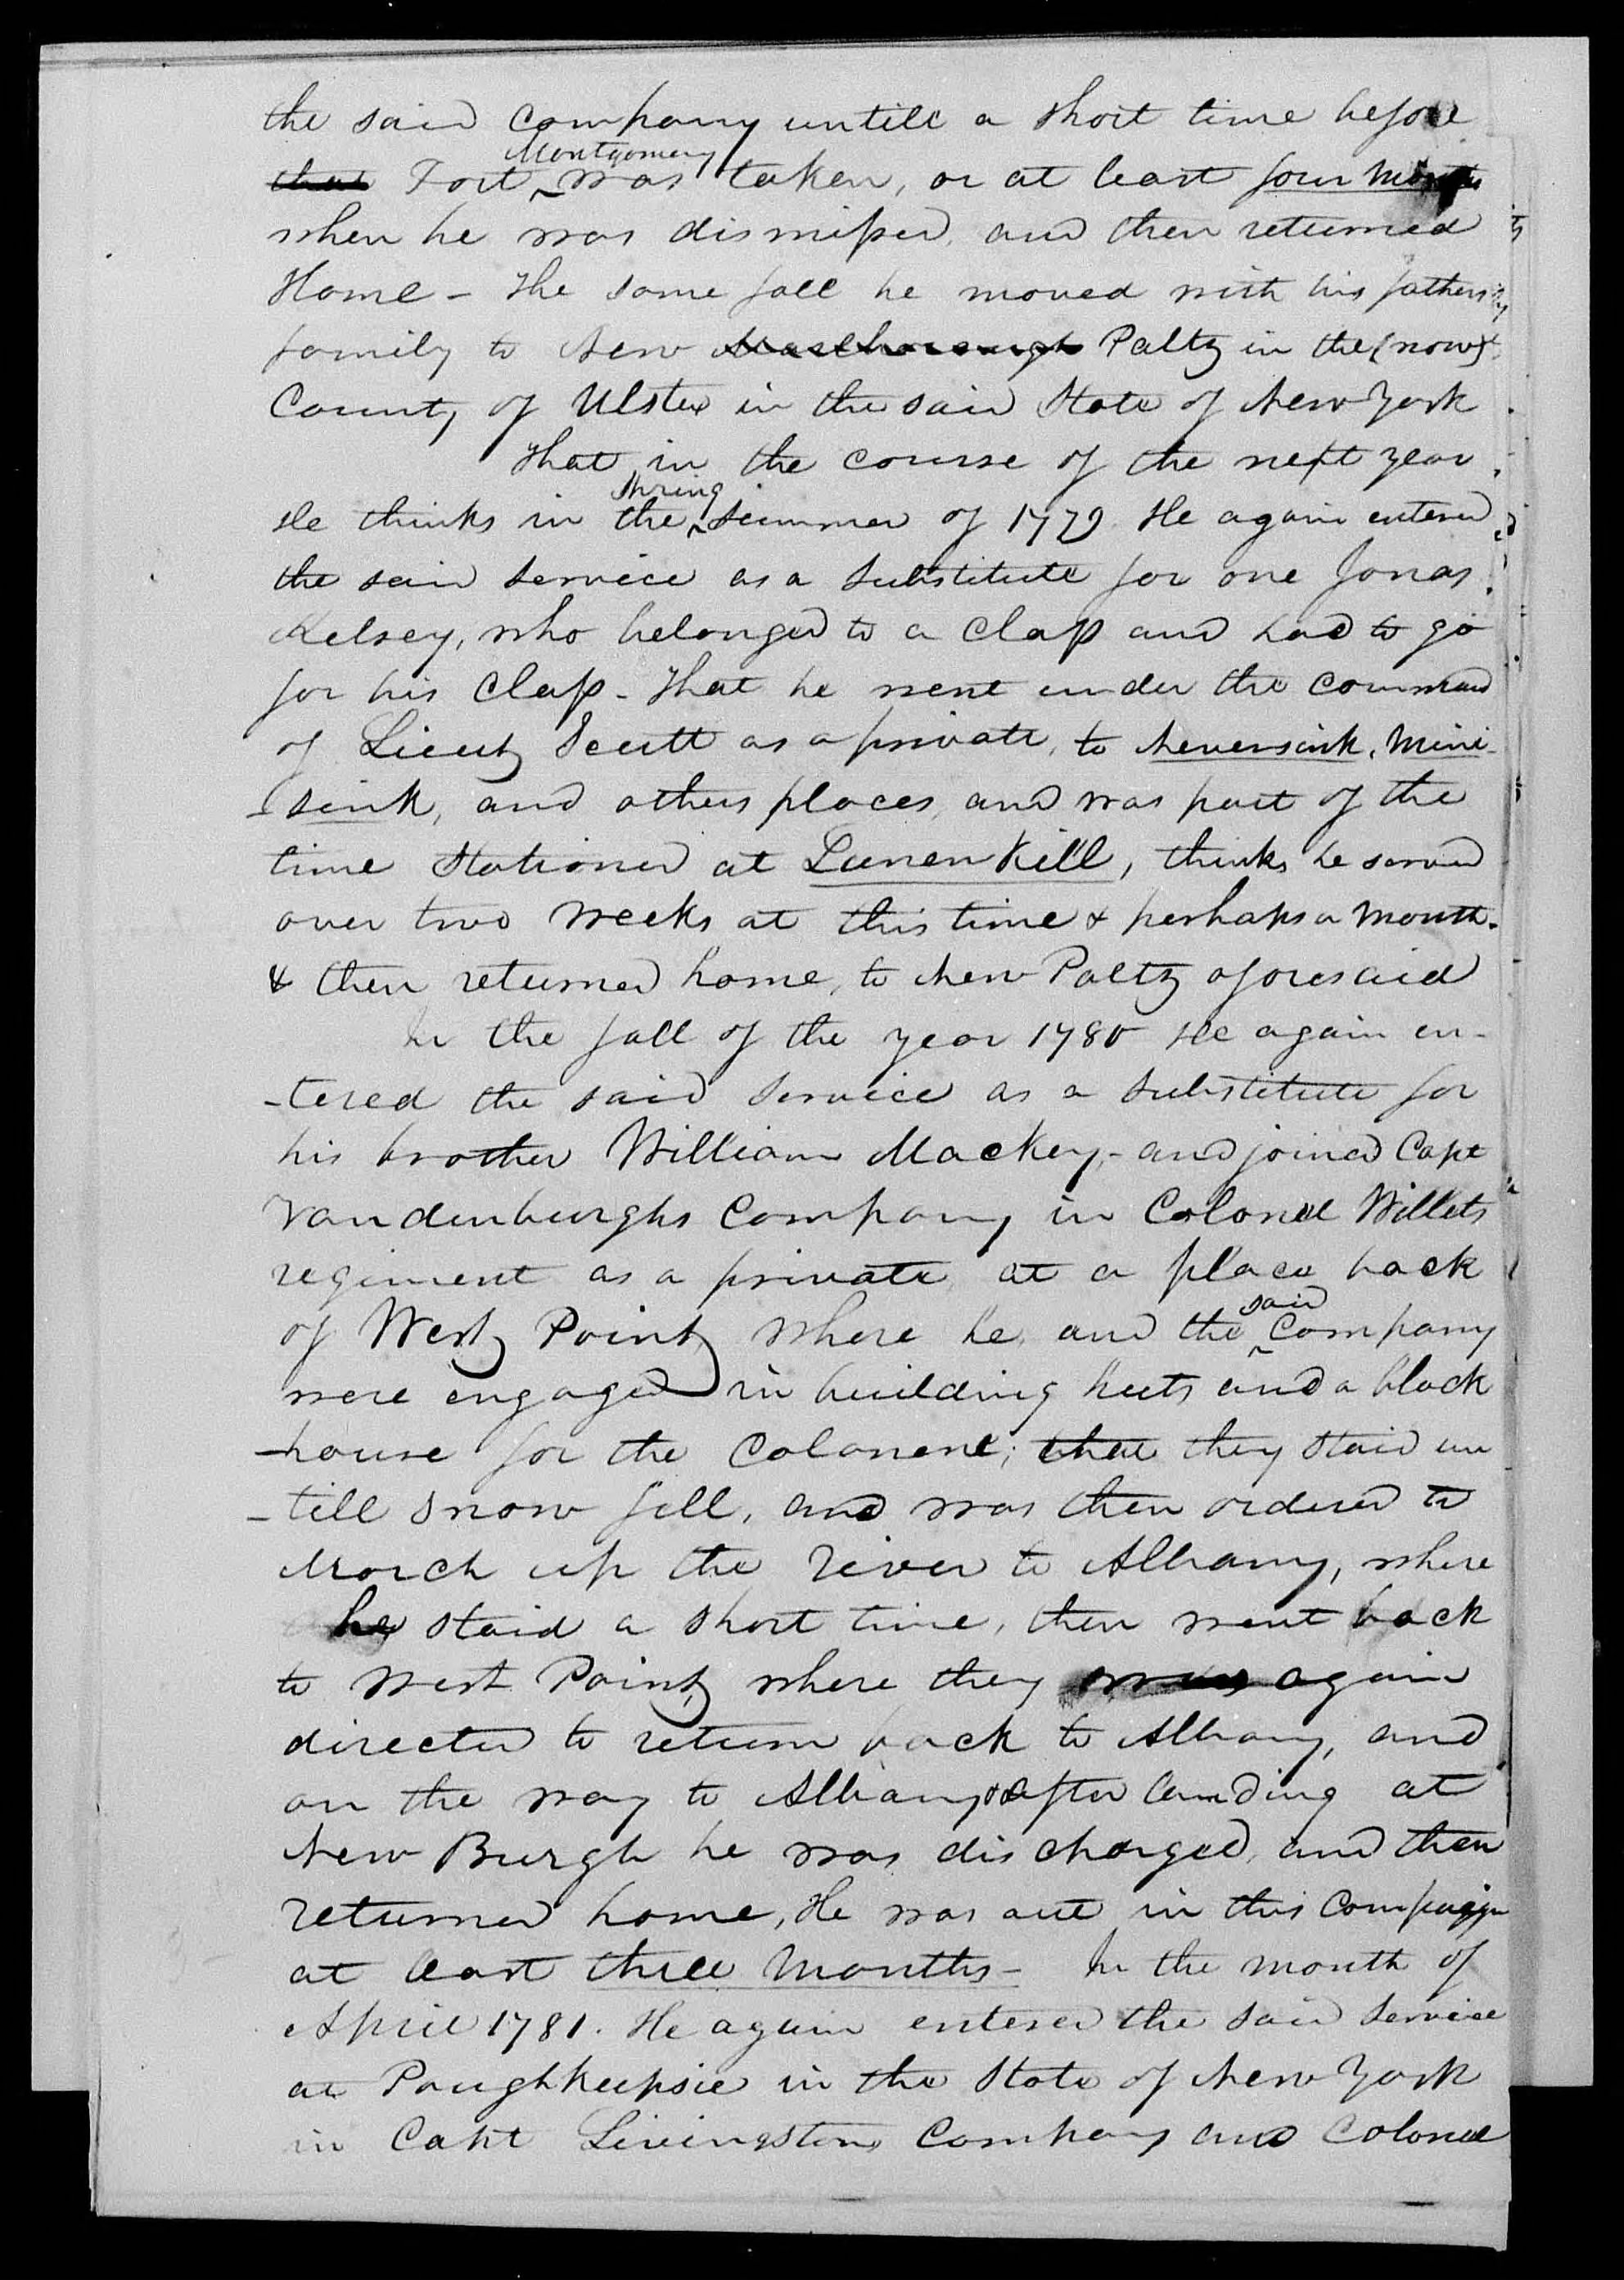 the said Company untill a short time before
that Fort Montgomery was taken, or at least four Months
when he was dismissed, and then returned
Home - The same fall he moved with his fathers
family to New Marlborough Paltz in the (now)
County of Ulster in the said State of New York
That in the course of the next year
He thinks in the Spring Summer of 1779 He again entered
the said service as a Substitute for one Jonas
Kelsey, who belonged to a Class and had to go
for his Class - That he went under the command
of Lieut Scutt as a private, to Neversink, Mini-
-sink, and others places, and was part of the
time Stationed at Lunen Kill, thinks he served
over two weeks at this time & perhaps a month.
& then returned home, to New Paltz aforesaid
In the fall of the year 1780 He again en-
-tered the said Service as a Substitute for
his brother William Mackey, - and joined Capt
Vandenburghs Company in Colonel Willets
regiment as a private, at a place back
of West Point where he and the said Company
were engaged in building huts and a block
-house for the Colonenl; that they staid un
-till snow fell, and was then ordered to
March up the river to Albany, where
he staid a short time, then went back
to West Point where they was again
directed to return back to Albany, and
on the way to Albany & after landing at
New Burgh he was discharged, and then
returned home, He was out in this Compaign
at least three Months - In the month of
April 1781. He again entered the said Service
at Poughkeepsie in the State of New York
in Capt Livingstons Company and Colonel